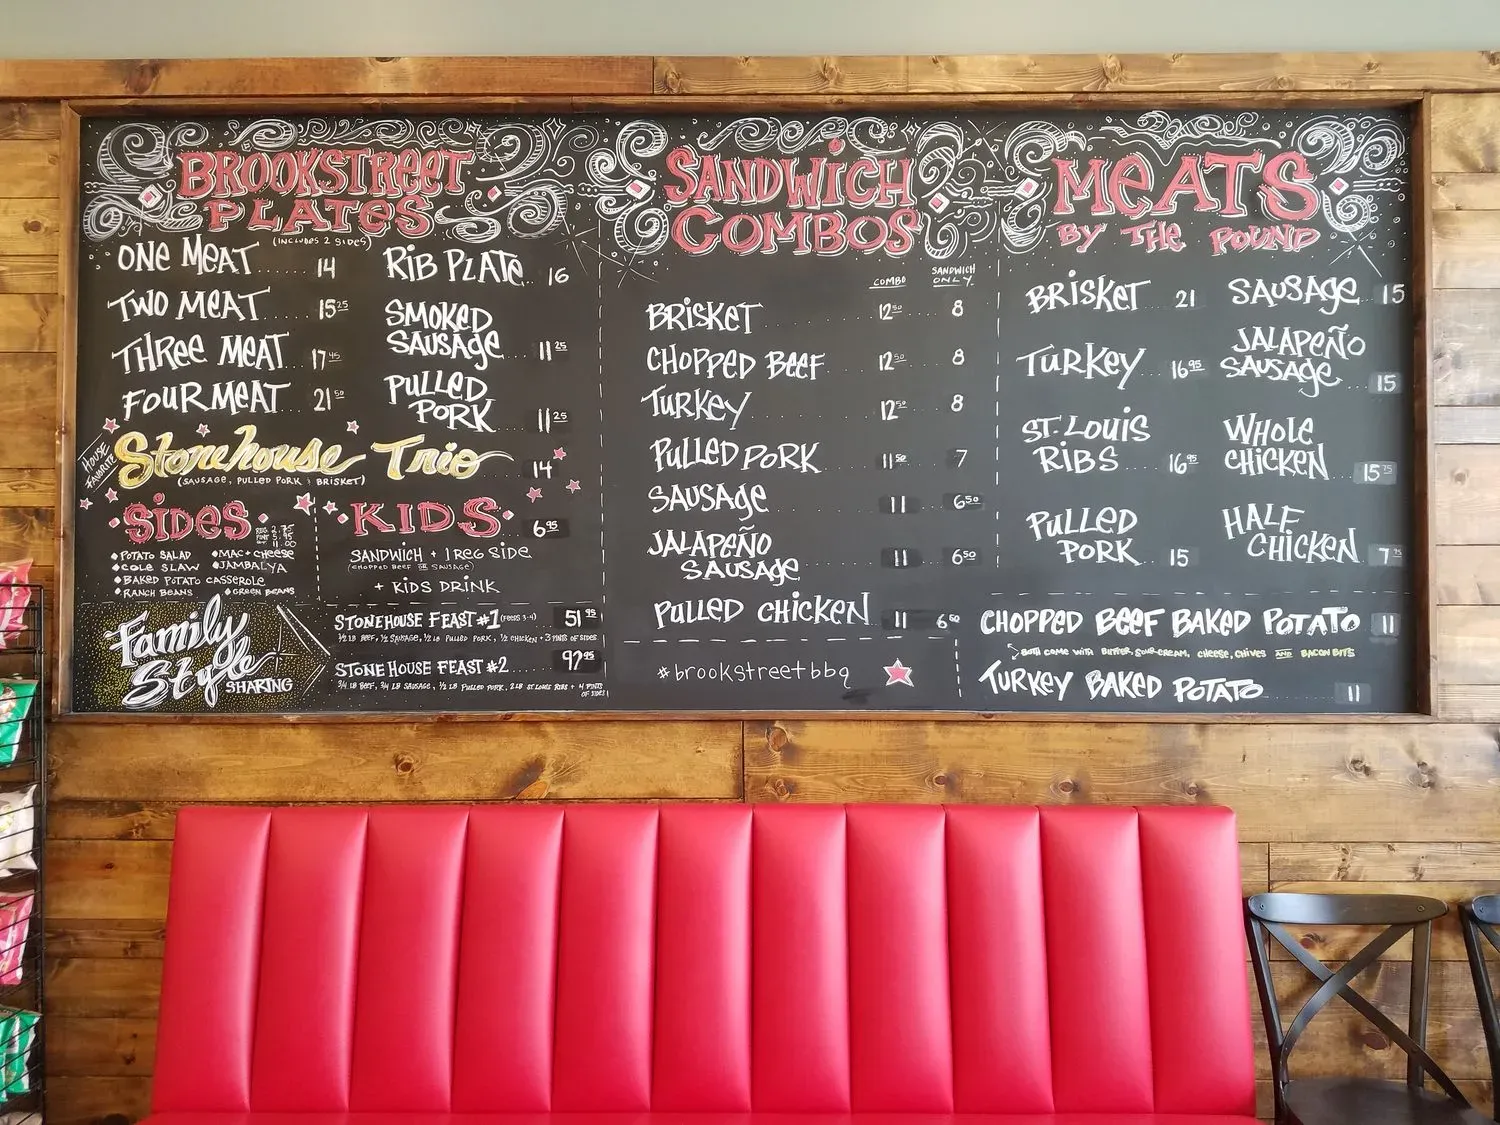 BROOKSTREET
PLATES
(INCLUDES 2 SIDES)
ONE MEAT 14
TWO MEAT 15 25
THREE MEAT 17 45
FOUR MEAT 21 50
RIB PLATE 16
SMOKED
SAUSAGE 11 25
PULLED
PORK 11 25
HOUSE
FAVORITE
Stonehouse Trio 14
(SAUSAGE, PULLED PORK & BRISKET)
SIDES
REG 2.75
11.00
POTATO SALAD
COLE SLAW
BAKED POTATO CASSEROLE
RANCH BEANS
MAC + CHEESE
JAMBALYA
GREEN BEANS
KIDS 6 95
SANDWICH + 1 REG SIDE
(CHOPPED BEEF OR SAUSAGE)
+ KIDS DRINK
Family
Style
SHARING
STONEHOUSE FEAST #1 (FEEDS 3-4) 51 95
1/2 LB BEEF, 1/2 SAUSAGE, 1/2 LB PULLED PORK, 1/2 CHICKEN + 3 PINTS OF SIDES
STONEHOUSE FEAST #2 97 95
3/4 LB BEEF, 3/4 LB SAUSAGE, 1/2 LB PULLED PORK, 2 LB ST. LOUIS RIBS + 4 PINTS
OF SIDES
SANDWICH
COMBOS
COMBO
SANDWICH
ONLY
BRISKET 12 50 8
CHOPPED BEEF 12 50 8
TURKEY 12 50 8
PULLED PORK 11 50 7
SAUSAGE 11 6 50
JALAPEÑO
SAUSAGE 11 6 50
PULLED CHICKEN 11 6 50
#brookstreetbbq
MEATS
BY THE POUND
BRISKET 21
TURKEY 16 95
ST. LOUIS
RIBS 16 95
PULLED
PORK 15
SAUSAGE 15
JALAPEÑO
SAUSAGE 15
WHOLE
CHICKEN 15 75
HALF
CHICKEN 7 95
CHOPPED BEEF BAKED POTATO 11
BOTH COME WITH BUTTER, SOUR CREAM, CHEESE, CHIVES AND BACON BITS
TURKEY BAKED POTATO 11